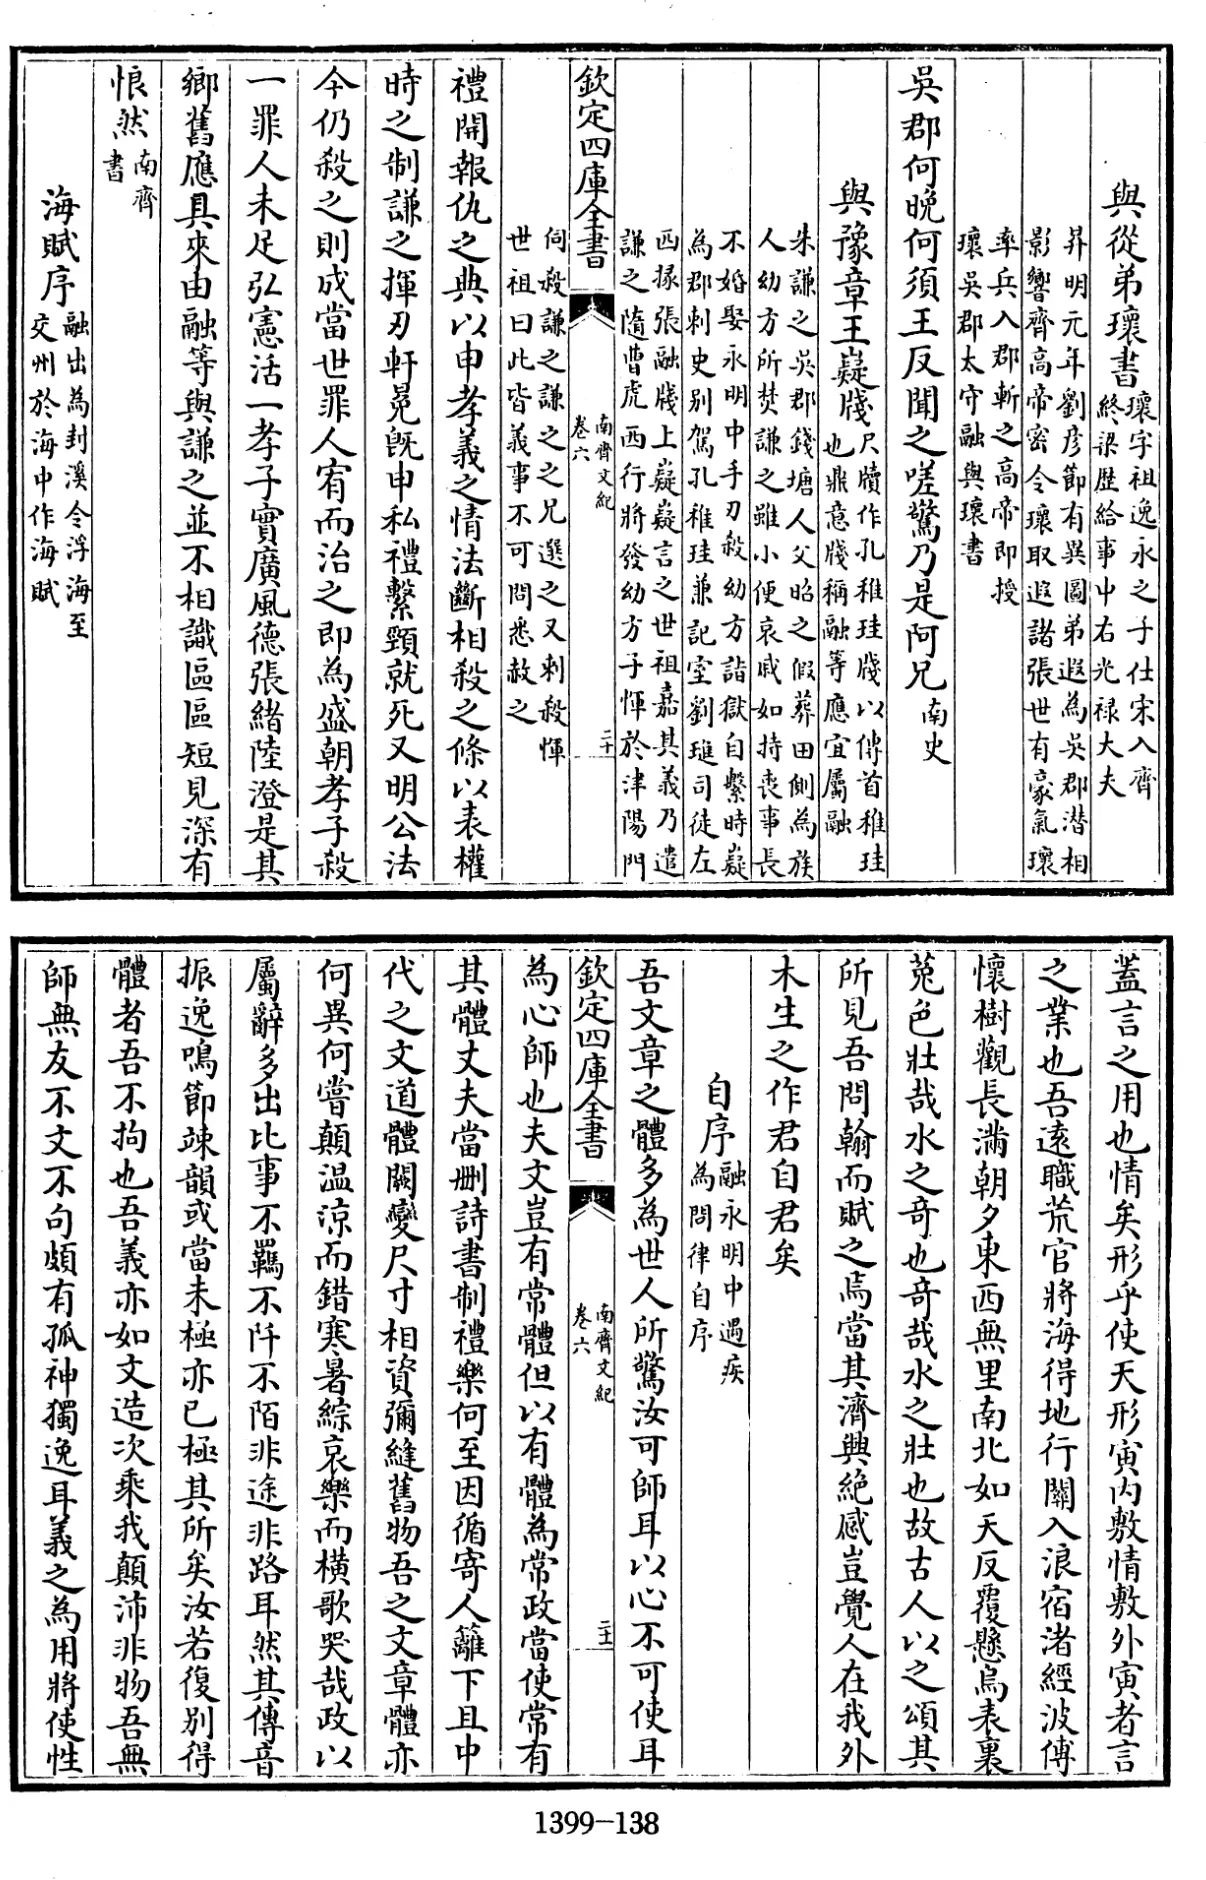 與從弟瓌書瓌字祖逸永之子仕宋入齊
終梁歴給事中右光禄大夫
昇明元年劉彦節有異圖弟遐為吳郡潜相
影響齊高帝宻令瓌取遐諸張世有豪氣瓌
率兵入郡斬之高帝即授
瓌吳郡太守融與瓌書
吳郡何晚何須王反聞之嗟驚乃是阿兄南史
與豫章王嶷牋尺牘作孔稚珪牋以傅首稚珪
也鼎意牋稱融等應宜屬融
朱謙之吳郡錢塘人父昭之假葬田側為族
人幼方所焚謙之雖小便哀戚如持丧事長
不婚娶永明中手刃殺幼方詣獄自繫時嶷
為郡刺史别駕孔稚珪兼記室劉璡司徒左
西掾張融牋上嶷嶷言之世祖嘉其義乃遣
謙之隨曹虎西行將發幼方子惲於津陽門
欽定四庫全書
南齊文紀
卷六
二十
伺殺謙之謙之之兄選之又刺殺惲
世祖曰此皆義事不可問悉赦之
禮開報仇之典以申孝義之情法斷相殺之條以表權
時之制謙之揮刃軒冕旣申私禮繫頸就死又明公法
今仍殺之則成當世罪人宥而治之即為盛朝孝子殺
一罪人未足弘憲活一孝子實廣風德張緒陸澄是其
鄉舊應具來由融等與謙之並不相識區區短見深有
悢然南齊
書
海賦序融出為封溪令浮海至
交州於海中作海賦
葢言之用也情矣形乎使天形寅内敷情敷外寅者言
之業也吾逺職荒官將海得地行關入浪宿渚經波傅
懷樹觀長滿朝夕東西無里南北如天反覆懸烏表裏
菟色壯哉水之奇也竒哉水之壯也故古人以之頌其
所見吾問翰而賦之焉當其濟興絶感豈覺人在我外
木生之作君自君矣
自序融永明中遇疾
為問律自序
吾文章之體多為世人所驚汝可師耳以心不可使耳
欽定四庫全書
南齊文紀
卷六
二十一
為心師也夫文豈有常體但以有體為常政當使常有
其體丈夫當刪詩書制禮樂何至因循寄人籬下且中
代之文道體闕變尺寸相資彌縫舊物吾之文章體亦
何異何嘗顛温凉而錯寒暑綜哀樂而横歌哭哉政以
屬辭多出比事不羈不阡不陌非途非路耳然其傳音
振逸鳴節竦韻或當未極亦已極其所矣汝若復别得
體者吾不拘也吾義亦如文造次乘我顛沛非物吾無
師無友不文不句頗有孤神獨逸耳義之為用將使性
1399-138